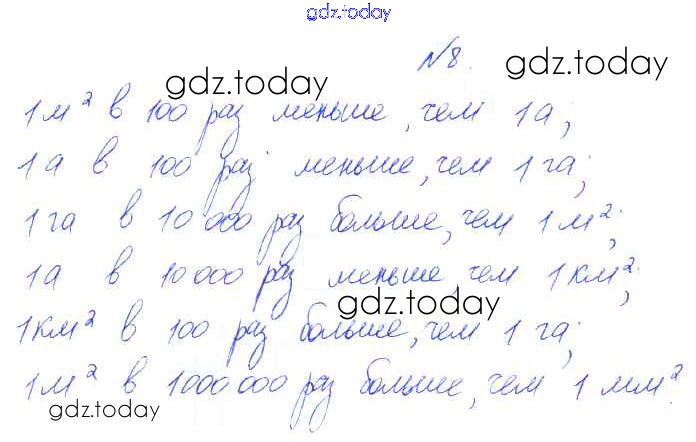 gdz.today
№8.
gdz.today
gdz.today
1 м² в 100 раз меньше, чем 1 а;
1 а в 100 раз меньше, чем 1 га;
1 га в 10 000 раз больше, чем 1 м²;
1 а в 10 000 раз меньше, чем 1 км²;
gdz.today
1 км² в 100 раз больше, чем 1 га;
1 м² в 1 000 000 раз больше, чем 1 мм².
gdz.today